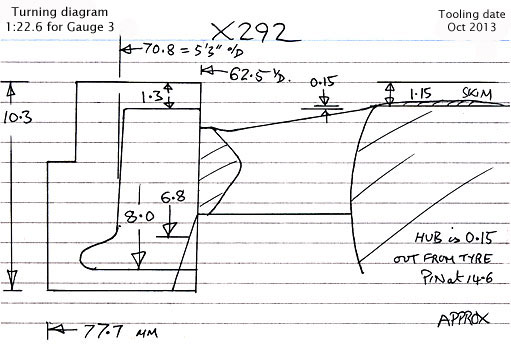 Turning diagram
1:22.6 for Gauge 3
X292
Tooling date
Oct 2013
70.8 = 5'3" O/D
62.5 I/D.
1.3
0.15
1.15 SKIM
10.3
6.8
8.0
HUB is 0.15
OUT FROM TYRE
PIN at 14.6
77.7 MM
APPROX